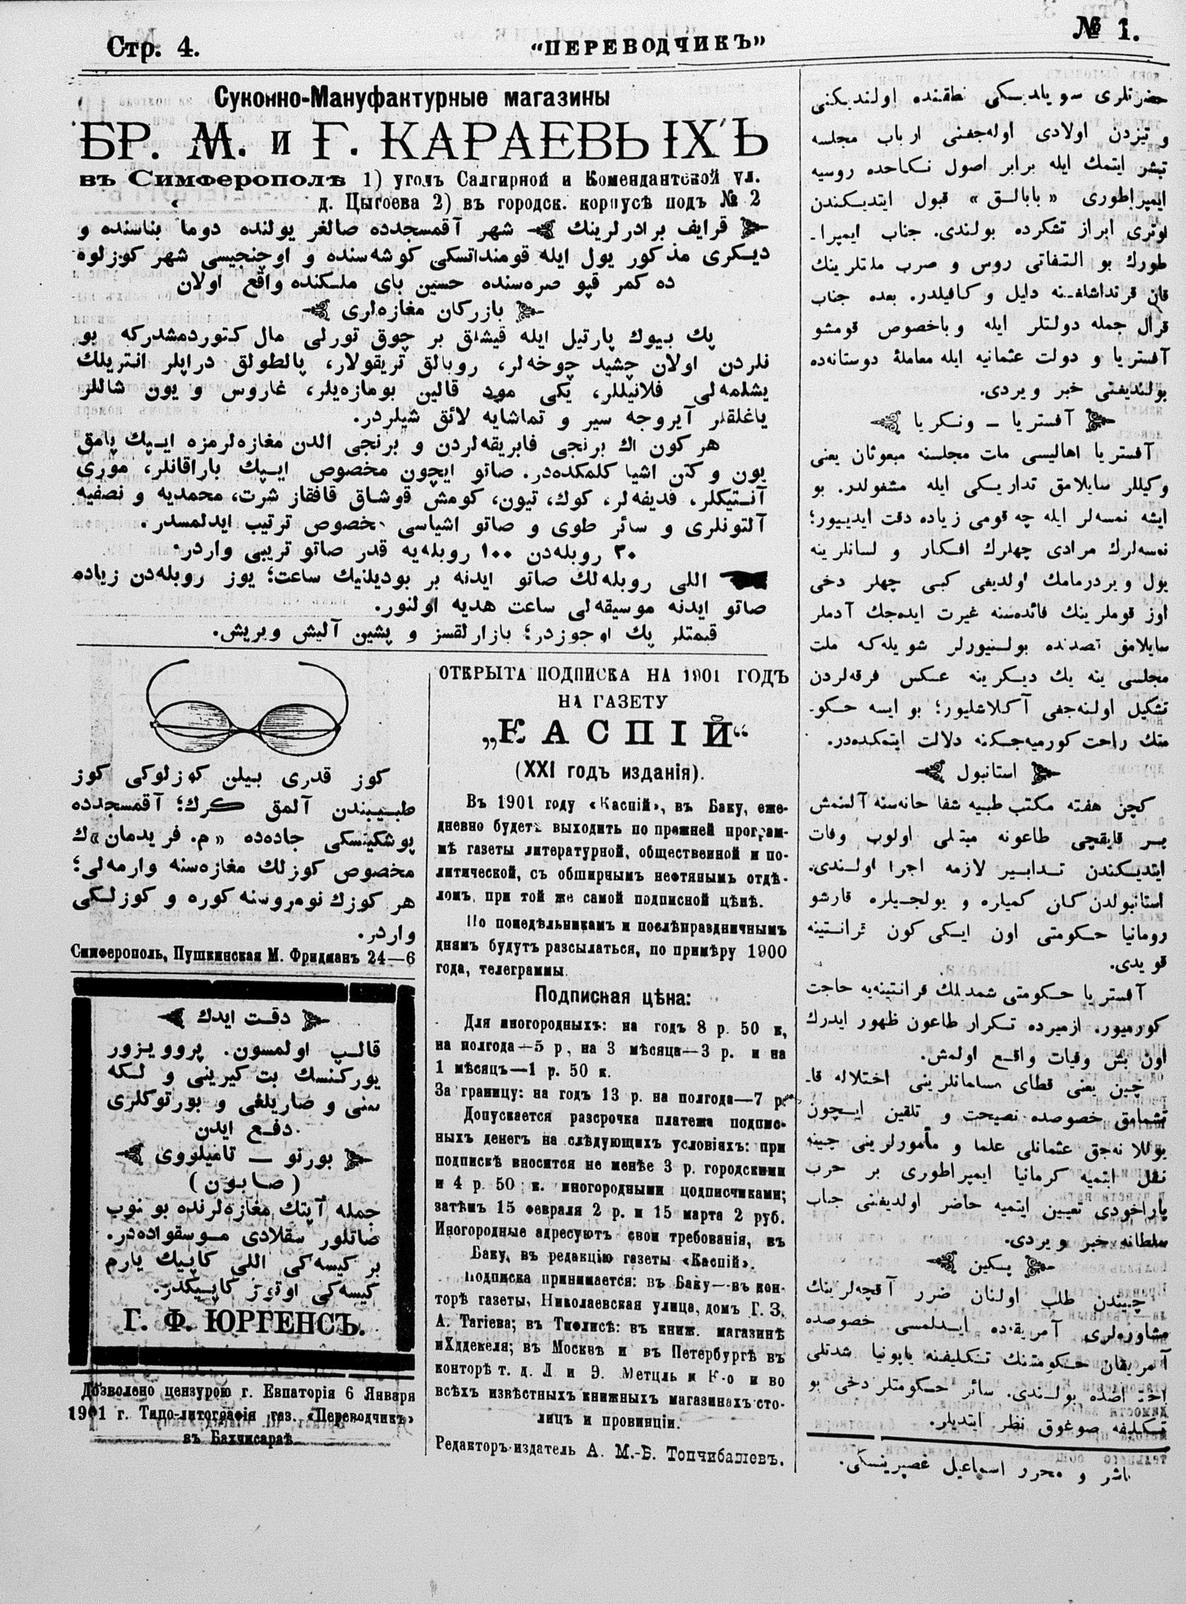 Стр. 4.
“ПЕРЕВОДЧИКЪ”
№ 1.
Суконно-Мануфактурные магазины
БР. М. и Г. КАРАЕВЫХЪ
въ Симферополѣ 1) уголъ Салгирной и Комендантской ул.
д. Цыгоева 2) въ городск. корпусѣ подъ № 2
قرايف برادرلرينك شهر آقمسجدده صالغر يولنده دوما بناسنده و
ديكرى مذكور يول ايله قومنداتسكى كوشه‌سنده و اوچنجيسى شهر كوزلوه
ده كمر قپو صره‌سنده حسين باى ملكنده واقع اولان
بازركان مغازه‌لرى
پك بيوك پارتيل ايله قيشلق بر چوق تورلى مال كتوردمشدركه بو
نلردن اولان چشيد چوخه‌لر، روبالق تريقولار، پالطولق دراپلر انتريلك
يشلمه‌لى فلانيللر، يكى مود قالين بومازه‌يلر، غاروس و يون شاللر
ياغلقلر آيروجه سير و تماشايه لائق شيلردر.
هر كون اك برنجى فابريقه‌لردن و برنجى الدن مغازه‌لرمزه ايپك پامق
يون و كتن اشيا كلمكده‌در. صاتو ايچون مخصوص ايپك باراقانلر، مورى
آنتيكلر، قديفه‌لر، كوك، تيون، كومش قوشاق قافقاز شرت، محمديه و نصفيه
آلتونلرى و سائر طوى و صاتو اشياسى بخصوص ترتيب ايدلمسدر.
٣٠ روبله‌دن ١٠٠ روبله‌يه قدر صاتو تريبى واردر.
اللى روبله‌لك صاتو ايدنه بر بوديلنيك ساعت؛ يوز روبله‌دن زياده
صاتو ايدنه موسيقه‌لى ساعت هديه اولنور.
قيمتلر پك اوجوزدر؛ بازارلقسز و پشين آليش ويريش.
كوز قدرى بيلن كوزلوكى كوز
طبيبندن آلمق كرك؛ آقمسجدده
پوشكينسكى جادده‌ده «م. فريدمان»ك
مخصوص كوزلك مغازه‌سنه وارمه‌لى؛
هر كوزك نومروسنه كوره و كوزلكى
واردر.
Симферополь, Пушкинская М. Фридманъ 24—6
دقت ايدك
قالپ اولمسون. پروويزور
يوركنسك بت كيرينى و لكه
سنى و صاريلغى و بورتوكلرى
دفع ايدن
بورنو — تاميلووى
(صابون)
جمله آپتك مغازه‌لرنده بو نوب
صاتلور سقلادى موسقواده‌در.
بر كيسه‌كى اللى كاپيك يارم
كيسه‌كى اوتوز كاپيكدر.
Г. Ф. ЮРГЕНСЪ.
Дозволено цензурою г. Евпаторія 6 Января
1901 г. Типо-литографія газ. «Переводчикъ»
въ Бахчисараѣ
ОТКРЫТА ПОДПИСКА НА 1901 ГОДЪ
НА ГАЗЕТУ
„КАСПІЙ“
(XXI годъ изданія).
Въ 1901 году «Каспій», въ Баку, еже-
дневно будетъ выходить по прежней програм-
мѣ газеты литературной, общественной и по-
литической, съ обширнымъ нефтянымъ отдѣ-
ломъ, при той же самой подписной цѣнѣ.
По понедѣльникамъ и послѣпраздничнымъ
днямъ будутъ разсылаться, по примѣру 1900
года, телеграммы.
Подписная цѣна:
Для иногородныхъ: на годъ 8 р. 50 к,
на полгода—5 р, на 3 мѣсяца—3 р. и на
1 мѣсяцъ—1 р. 50 к.
За границу: на годъ 13 р. на полгода—7 р
Допускается разсрочка платежа подпис-
ныхъ денегъ на слѣдующихъ условіяхъ: при
подпискѣ вносится не менѣе 3 р. городскими
и 4 р. 50 к. иногородными подписчиками;
затѣмъ 15 февраля 2 р. и 15 марта 2 руб.
Иногородные адресуютъ свои требованія, въ
Баку, въ редакцію газеты «Каспій».
Подписка принимается: въ Баку—въ кон-
торѣ газеты, Николаевская улица, домъ Г. З.
А. Тагіева; въ Тифлисѣ: въ книж. магазинѣ
въ Москвѣ и въ Петербургѣ въ
конторѣ т. д. Л и Э. Метцль и К-о и во
всѣхъ извѣстныхъ книжныхъ магазинахъ сто-
лицъ и провинціи.
Редакторъ-издатель А. М.-Б. Топчибашевъ.
حضرتلرى سويلديكى نطقنده اولنديكنى
و تيزدن اولادى اوله‌جغنى ارباب مجلسه
تبشر ايتمك ايله برابر اصول نكاحده روسيه
ايمپراطورى «بابالق» قبول ايتديكندن
اوترى ابراز تشكرده بولندى. جناب ايمپرا-
طورك بو التفاتى روس و صرب ملتلرينك
قان قرنداشلغنه دليل و كافيلدر. بعده جناب
قرال جمله دولتلر ايله و باخصوص قومشو
آفستريا و دولت عثمانيه ايله معاملهٔ دوستانه‌ده
بولنديغنى خبر ويردى.
آفستريا — ونكريا
آفستريا اهاليسى ملت مجلسنه مبعوثان يعنى
وكيللر سايلامق تداريكى ايله مشغولدر. بو
ايشه نمسه‌لر ايله چه قومى زياده دقت ايدييور؛
نمسه‌لرك مرادى چهلرك افكار و لسانلرينه
يول ويردرمامك اولديغى كبى چهلر دخى
اوز قوملرينك فائده‌سنه غيرت ايده‌جك آدملر
سايلامق قصدنده بولنيورلر شويله‌كه ملت
مجلسى ينه يك ديكرينه عكس فرقه‌لردن
تشكيل اولنه‌جغى آكلاشليور؛ بو ايسه حكو-
متك راحت كورميه‌جكنه دلالت ايتمكده‌در.
استانبول
كچن هفته مكتب طبيه شفا خانه‌سنه آلنمش
بر قايقچى طاعونه مبتلى اولوب وفات
ايتديكندن تدابير لازمه اجرا اولندى.
استانبولدن كان كميلره و يولجيلره قارشو
رومانيا حكومتى اون ايكى كون قرانتينه
قويدى.
آفستريا حكومتى شمديلك قرانتينه‌يه حاجت
كورميور. ازميرده تكرار طاعون ظهور ايدرك
اون بش وفيات واقع اولمش.
چين يعنى قطاى مسلمانلرينى اختلاله قا-
تشمامق خصوصده نصيحت و تلقين ايچون
يوللانه‌جق عثمانلى علما و مأمورلرينى چينه
نقل ايتميه كرمانيا ايمپراطورى بر حرب
پاراخودى تعيين ايتميه حاضر اولديغنى جناب
سلطانه خبر ويردى.
پكين
چيندن طلب اولنان ضرر آقچه‌لرينك
مشاوره‌لرى آمريقه‌ده ايدلمسى خصوصده
آمريقان حكومتنك تكليفنه ياپونيا شدتلى
بولندى. سائر حكومتلر دخى بو
تكليفه صوغوق نظر ايتديلر.
ناشر و محرر اسماعيل غصپرينسكى.